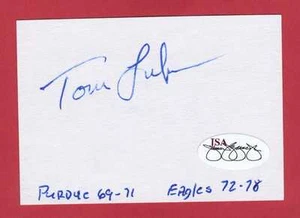 Tom
JSA
PURDUE 69-71 EAGLES 72-78